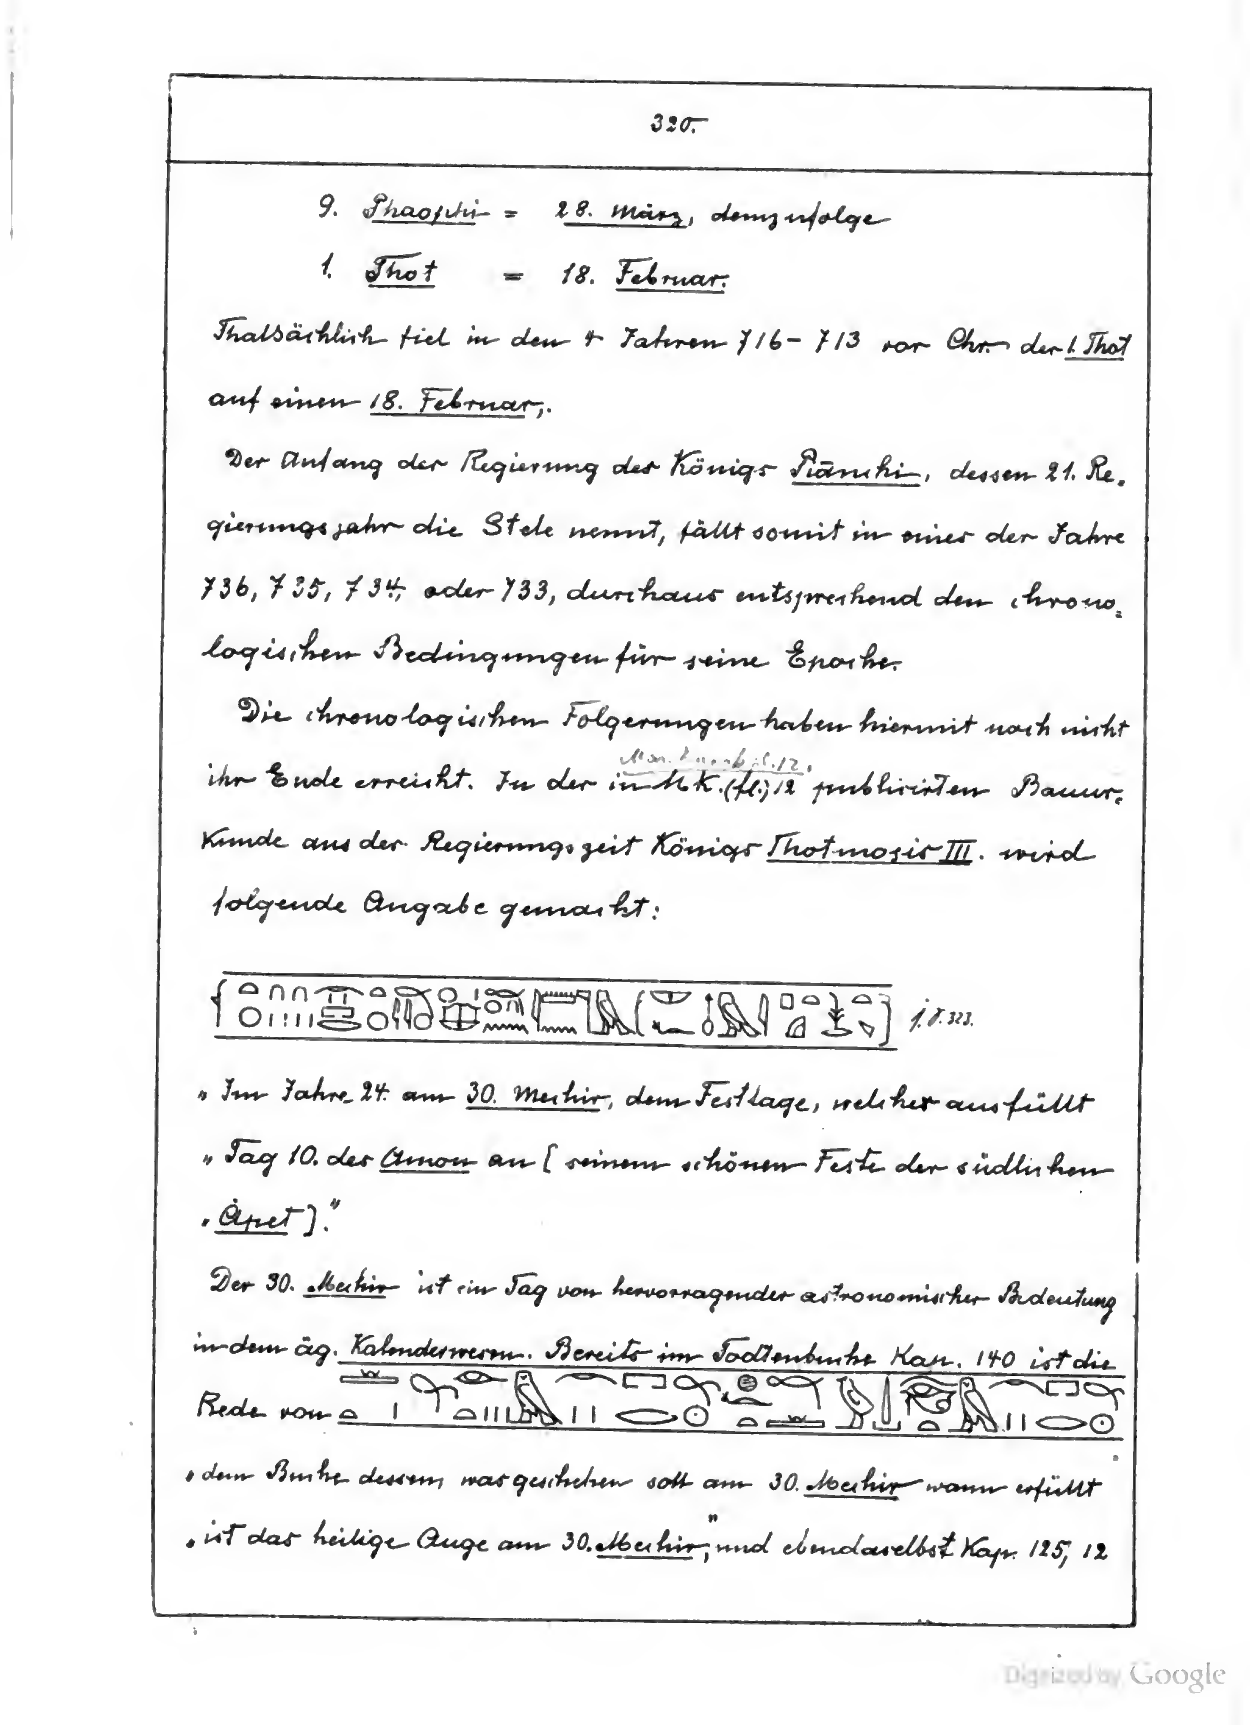 320.
9. Phaophi = 28. März, demzufolge
1. Thot = 18. Februar.
Thatsächlich fiel in den 4 Jahren 716-713 vor Chr. der 1. Thot
auf einen 18. Februar.
Der Anfang der Regierung des Königs Piānchi, dessen 21. Re-
gierungsjahr die Stele nennt, fällt somit in eines der Jahre
736, 735, 734, oder 733, durchaus entsprechend den chrono-
logischen Bedingungen für seine Epoche.
Die chronologischen Folgerungen haben hiermit noch nicht
ihr Ende erreicht. In der in M.K. (fl.) 12 publicirten Bauur-
kunde aus der Regierungszeit Königs Thotmosis III. wird
folgende Angabe gemacht:
f. S. 323.
„Im Jahre 24 am 30. Mechir, dem Festtage, welcher ausfüllt
„Tag 10. des Amon an [seinem schönen Feste der südlichen
„Apet]."
Der 30. Mechir ist ein Tag von hervorragender astronomischer Bedeutung
in dem äg. Kalenderwesen. Bereits im Todtenbuche Kap. 140 ist die
Rede von
„dem Buche dessen, was geschehen soll am 30. Mechir wann erfüllt
„ist das heilige Auge am 30. Mechir," und ebendaselbst Kap. 125, 12
Digitized by Google